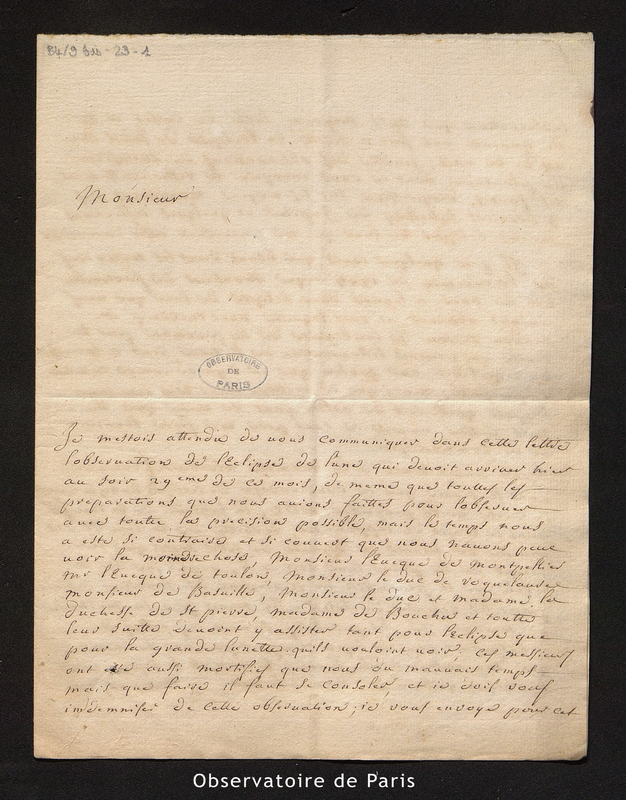 B4/9 bis - 29 - 1
Monsieur
OBSERVATOIRE
DE
PARIS
Je mestois attendu de vous communiquer dans cette lettre
lobservation de leclipse de lune qui devoit arriver hier
au soir 29eme de ce mois, de meme que touttes les
preparations que nous avions faittes pour lobserver
avec toutte la precision possible, mais le temps nous
a este si contraire et si couvert que nous navons peue
voir la moindre chose, Monsieur lEveque de Montpellier
mr lEveque de toulon, Monsieur le duc de Roquelaure
monsieur de Basville, Monsieur le duc et madame la
duchesse de St pierre, madame de Bouchu et toutte
leur suitte devoint y assister tant pour leclipse que
pour la grande lunette quils vouloint voir, ces messieurs
ont été aussi mortifies que nous du mauvais temps
mais que faire il faut se consoler et ie dois vous
indemniser de cette observation; ie vous envoye pour cet
Observatoire de Paris